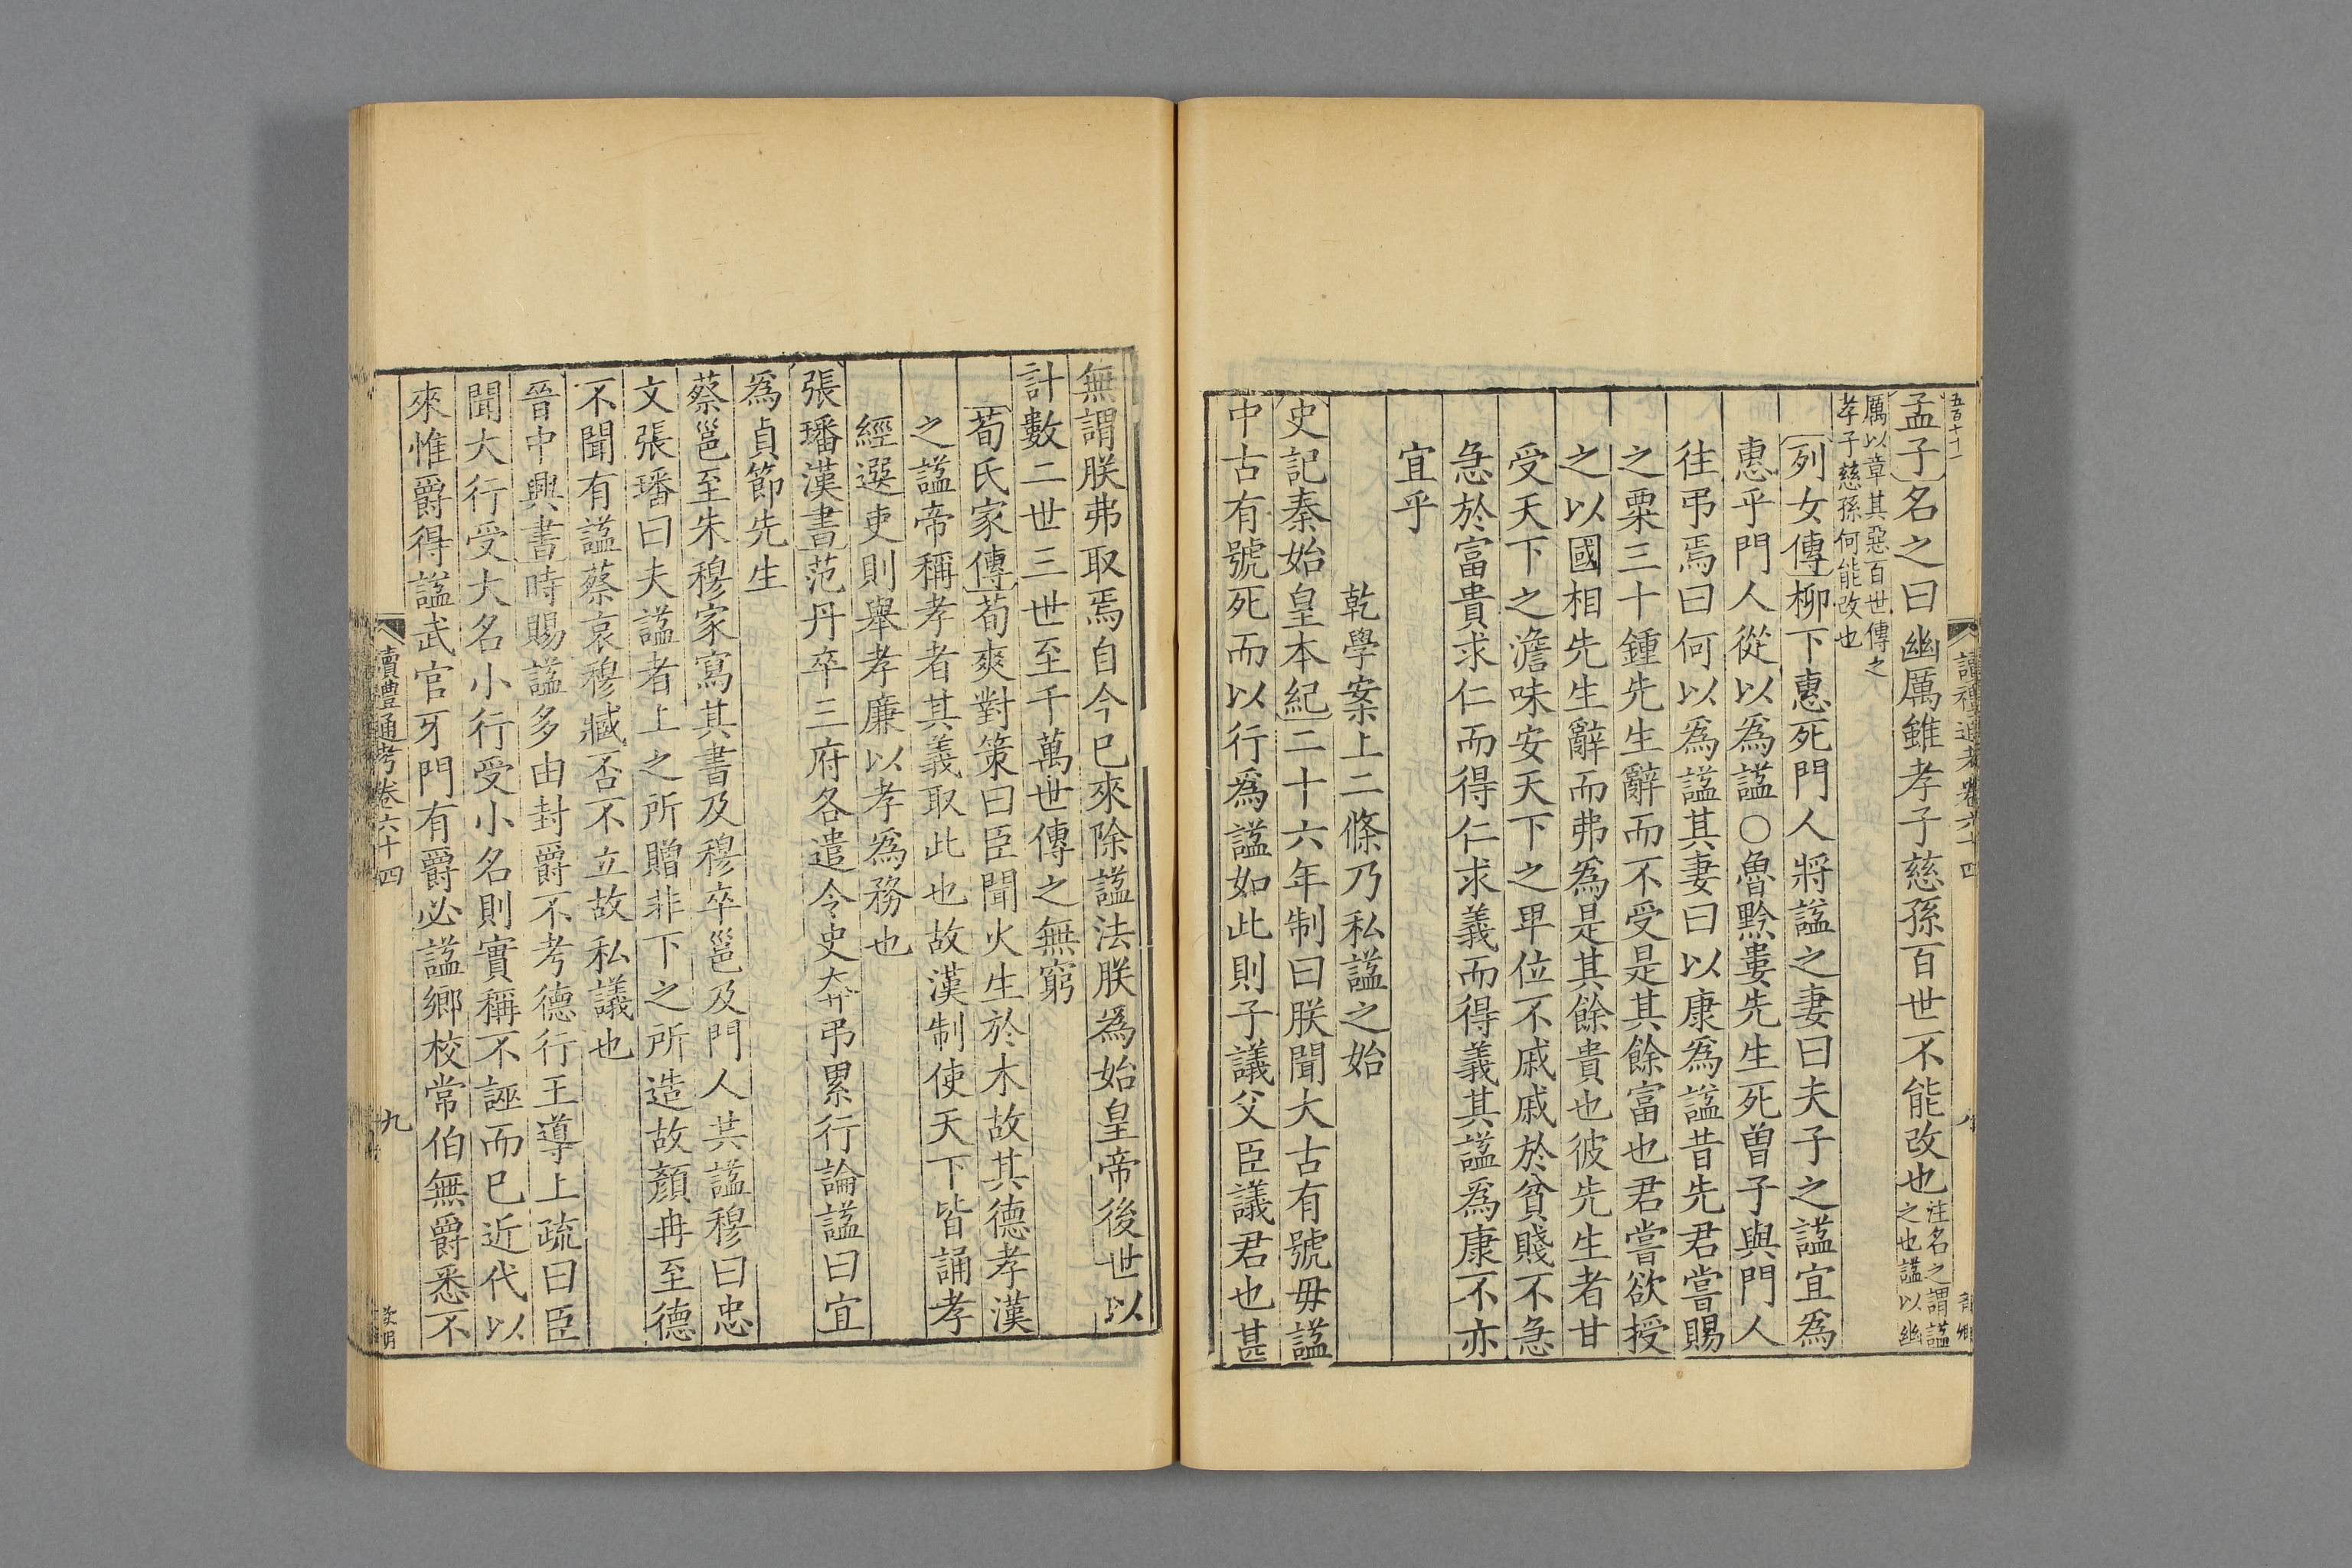 五百十一
讀禮通考卷六十四
八
孟子名之曰幽厲雖孝子慈孫百世不能改也注名之謂謚之也謚以幽
厲以章其惡百世傳之孝子慈孫何能改也
列女傳柳下惠死門人將謚之妻曰夫子之謚宜為
惠乎門人從以為謚○魯黔婁先生死曾子與門人
往弔焉曰何以為謚其妻曰以康為謚昔先君嘗賜
之粟三十鍾先生辭而不受是其餘富也君嘗欲授
之以國相先生辭而弗為是其餘貴也彼先生者甘
受天下之澹味安天下之卑位不戚戚於貧賤不急
急於富貴求仁而得仁求義而得義其謚為康不亦
宜乎
乾學案上二條乃私謚之始
史記秦始皇本紀二十六年制曰朕聞大古有號毋謚
中古有號死而以行為謚如此則子議父臣議君也甚
無謂朕弗取焉自今已來除謚法朕為始皇帝後世以
計數二世三世至千萬世傳之無窮
荀氏家傳荀爽對策曰臣聞火生於木故其德孝漢
之謚帝稱孝者其義取此也故漢制使天下皆誦孝
經選吏則舉孝廉以孝為務也
張璠漢書范丹卒三府各遣令史奔弔累行論謚曰宜
為貞節先生
蔡邕至朱穆家寫其書及穆卒邕及門人共謚穆曰忠
文張璠曰夫謚者上之所贈非下之所造故顏冉至德
不聞有謚蔡哀穆臧否不立故私議也
晉中興書時賜謚多由封爵不考德行王導上疏曰臣
聞大行受大名小行受小名則實稱不誣而已近代以
來惟爵得謚武官牙門有爵必謚鄉校常伯無爵悉不
讀禮通考卷六十四
九